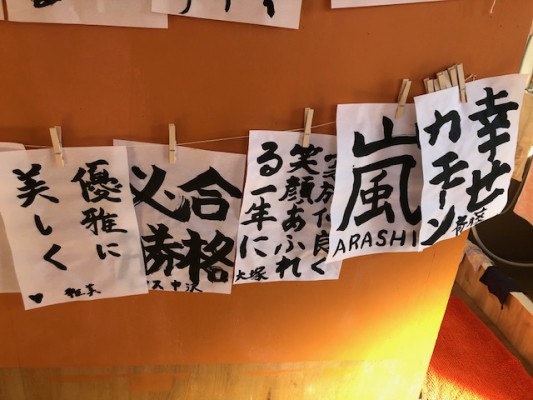 優雅に
美しく
♥
合格
必勝
中沢
良く
笑顔あふれ
る一年に
大塚
嵐
ARASHI
幸せ
カモーン